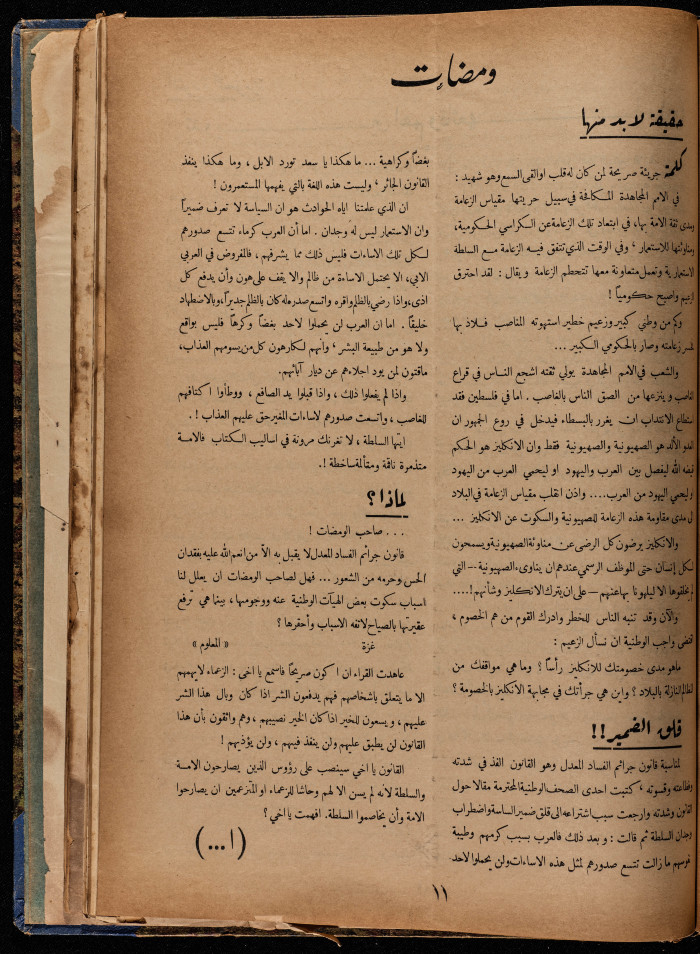 ومضات
حقيقة لا بد منها
كلمة جريئة صريحة لمن كان له قلب او القى السمع وهو شهيد :
في الامم المجاهدة المكافحة في سبيل حريتها مقياس الزعامة
ومدى ثقة الامة بها، في ابتعاد تلك الزعامة عن الكراسي الحكومية،
ومناوئتها للاستعمار ، وفي الوقت الذي تتفق فيه الزعامة مع السلطة
الاستعمارية وتعمل متعاونة معها تتحطم الزعامة ويقال : لقد احترق
الزعيم واصبح حكومياً !
وكم من وطني كبير وزعيم خطير استهوته المناصب فلاذ بها
فخسر زعامته وصار بالحكومي الكبير ...
والشعب في الامم المجاهدة يولي ثقته اشجع الناس في قراع
الغاصب وينزعها من الصق الناس بالغاصب . اما في فلسطين فقد
استطاع الانتداب ان يغرر بالبسطاء فيدخل في روع الجمهور ان
العدو الألد هو الصهيونية والصهيونية فقط وان الانكليز هو الحكم
قيضه الله ليفصل بين العرب واليهود او ليحمي العرب من اليهود
او ليحمي اليهود من العرب .... واذن انقلب مقياس الزعامة في البلاد
الى مدى مقاومة هذه الزعامة للصهيونية والسكوت عن الانكليز ...
والانكليز يرضون كل الرضى عن مناوئة الصهيونية ويسمحون
لكل إنسان حتى الموظف الرسمي عندهم ان يناوىء الصهيونية — التي
لم يخلقوها الا ليلهونا بها عنهم — على ان يترك الانكليز وشأنهم !....
والآن وقد تنبه الناس للخطر وادرك القوم من هم الخصوم ،
اقتضى واجب الوطنية ان نسأل الزعيم :
ماهو مدى خصومتك للانكليز رأساً ؟ وما هي مواقفك من
المظالم النازلة بالبلاد ؟ واين هي جرأتك في مجابهة الانكليز بالخصومة ؟
قلق الضمير !!
لمناسبة قانون جرائم الفساد المعدل وهو القانون الفذ في شدته
وفظاعته وقسوته ، كتبت احدى الصحف الوطنية المحترمة مقالا حول
القانون وشدته وارجعت سبب اشتراعه الى قلق ضمير الساسة واضطراب
وجدان السلطة ثم قالت : وبعد ذلك فالعرب بسبب كرمهم وطيبة
نفوسهم ما زالت تتسع صدورهم لمثل هذه الاساءات ولن يحملوا لاحد
بغضاً وكراهية ... ما هكذا يا سعد تورد الابل ، وما هكذا ينفذ
القانون الجائر ، وليست هذه اللغة بالتي يفهمها المستعمرون !
ان الذي علمتنا اياه الحوادث هو ان السياسة لا تعرف ضميراً
وان الاستعمار ليس له وجدان . اما أن العرب كرماء تتسع صدورهم
لكل تلك الاساءات فليس ذلك مما يشرفهم ، فالمفروض في العربي
الابي، الا يحتمل الاساءة من ظالم والا يقف على هون وأن يدفع كل
اذى، واذا رضي بالظلم واقره واتسع صدره له كان بالظلم جديراً، وبالاضطهاد
خليقاً . اما ان العرب لن يحملوا لاحد بغضاً وكرهاً فليس بواقع
ولا هو من طبيعة البشر ، وانهم لكارهون كل من يسومهم العذاب،
ماقتون لمن يود اجلاءهم عن ديار آبائهم.
واذا لم يفعلوا ذلك ، واذا قبلوا يد الصافع ، ووطأوا اكنافهم
للغاصب ، واتسعت صدورهم لاساءات المغير حق عليهم العذاب ! .
ايتها السلطة ، لا تغرنك مرونة في اساليب الكتاب فالامة
متذمرة ناقمة ومتألمة ساخطة !.
لماذا ؟
... صاحب الومضات !
قانون جرائم الفساد المعدل لا يقبل به الاّ من انعم الله عليه بفقدان
الحس وحرمه من الشعور ... فهل لصاحب الومضات ان يعلل لنا
اسباب سكوت بعض الهيآت الوطنية عنه ووجومها، بينما هي ترفع
عقيرتها بالصياح لاتفه الاسباب وأحقرها ؟
غزة « المعلوم »
عاهدت القراء ان اكون صريحاً فاسمع يا اخي : الزعماء لايهمهم
الا ما يتعلق باشخاصهم فهم يدفعون الشر اذا كان وبال هذا الشر
عليهم ، ويسعون للخير اذا كان الخير نصيبهم ، وهم واثقون بأن هذا
القانون لن يطبق عليهم ولن ينفذ فيهم ، ولن يؤذيهم !
القانون يا اخي سينصب على رؤوس الذين يصارحون الامة
والسلطة لأنه لم يسن الا لهم وحاشا للزعماء او المتزعمين ان يصارحوا
الامة وأن يخاصموا السلطة. افهمت يا اخي ؟
( ا ... )
١١